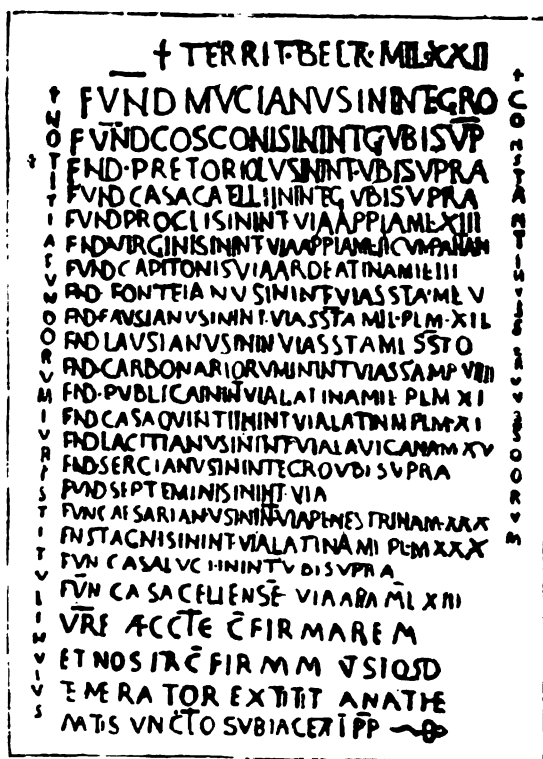 + TERRIT·BELR·MIL·XXII
FVND MVCIANVS IN INTEGRO
FVND COSCONIS IN INTG VBI SVP
FND·PRETORIOLVS IN INT·VBI SVPRA
FVND CASA CAELLII IN INTEG VBI SVPRA
FVND PROCLIS IN INT VIA APPIA MIL XIII
FND VIRGINIS IN INT VIA APPIA
FVND CAPITONIS VIA ARDEATINA MIL III
FND FONTEIANVS IN INT VIA SSTA·MIL V
FND·FAVSIANVS IN INT·VIA SSTA MIL·PLM·XII
FND LAVSIANVS ININ VIA SSTA MI SSTO
FND·CARBONARIORVM IN INT VIA SSTA MP VIII
FND·PVBLICA IN INT VIA LATINA MIL PLM XI
FND CASA QVINTI IN INT VIA LATIN M PLM XI
FND LACITIANVS IN INT VIA LAVICANA M XV
FND SERCIANVS IN INTECRO VBI SVPRA
FVND SEPTEMINIS IN INT·VIA
FVN CAESARIANVS IN INT·VIA PENESTRINA M·XXX
FN STAGNIS IN INT·VIA LATINA MI PLM XXX
FVN CASA LVCI·IN INT VBI SVPRA
FVN CASA CELLENSE VIA APA ML XIII
VRE ÆCCTE C̄FIRMAREM
ET NOSTRA C̄FIRMM VSIQSD
TEMERATOR EXTITIT ANATHE
MATIS VNCTO SVBIACEAT PP
+ NOTITIA FVNDORVM IVRIS TITVLI HVIVS